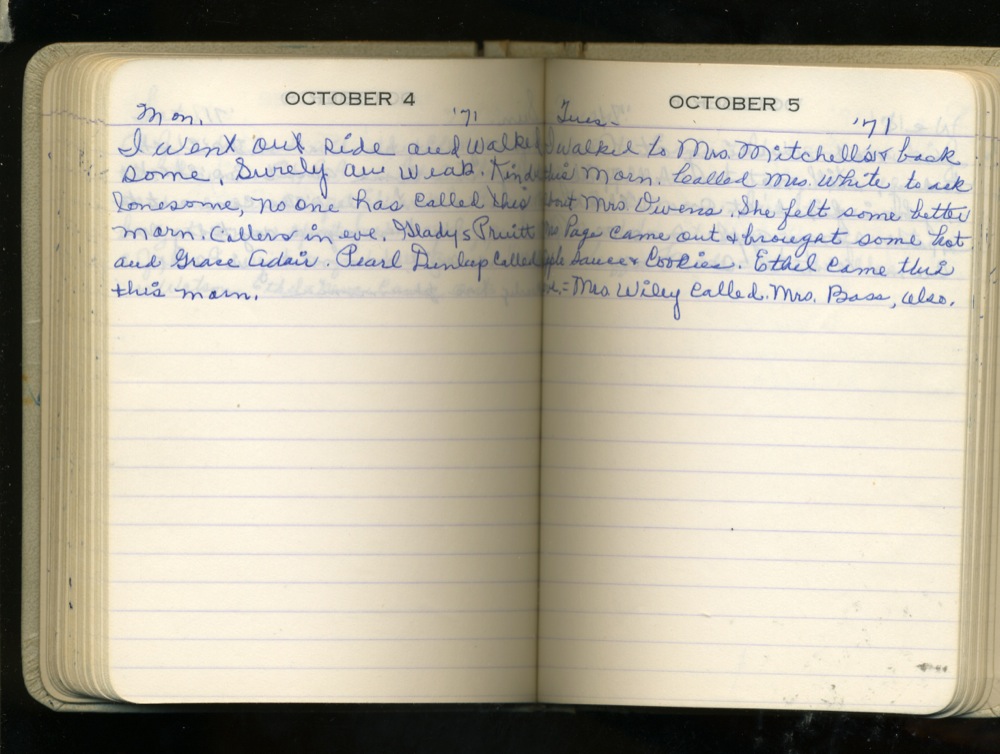 OCTOBER 4
Mon. '71
I went out side and walked
some. Surely am weak. Kinda
lonesome, no one has called this
morn. Callers in eve. Gladys Pruitt
and Grace Adair. Pearl Dunlap called
this morn.
OCTOBER 5
Tues. '71
I walked to Mrs. Mitchell's & back
this morn. Called Mrs. White to ask
bout Mrs Owens. She felt some better
Mrs Page came out & brought some hot
apple sauce & Cookies. Ethel came this
Mrs Wiley called. Mrs. Bass, also.